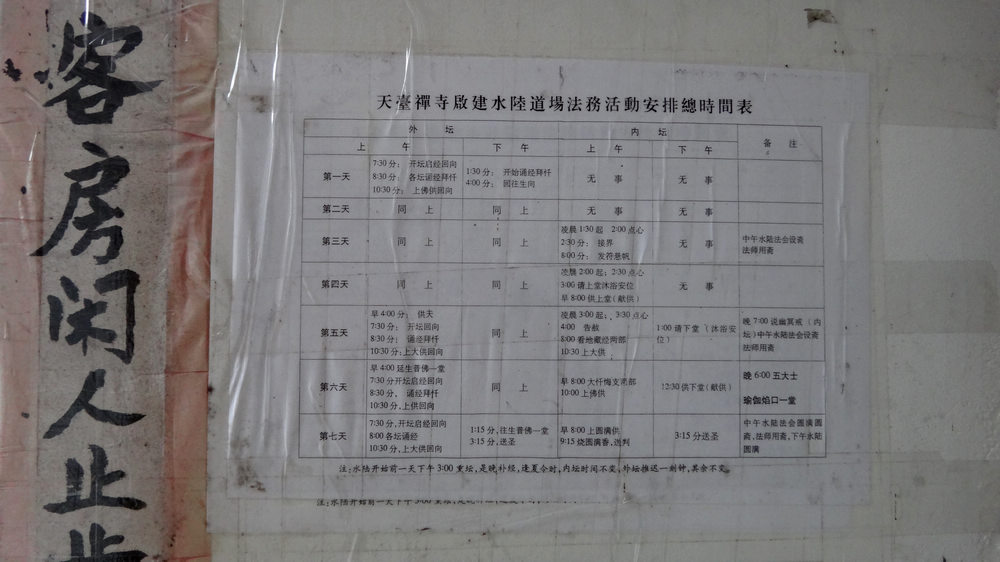 客房闲人止步
天臺禪寺啟建水陸道場法務活動安排總時間表
外 坛 内 坛 备 注
上 午 下 午 上 午 下 午
第一天
7:30分： 开坛启经回向
8:30分： 各坛诵经拜忏
10:30分： 上佛供回向
1:30分： 开始诵经拜忏
4:00分： 回往生向
无 事
无 事
第二天 同 上 同 上 无 事 无 事
第三天 同 上 同 上
凌晨 1:30 起 2:00 点心
2:30分： 接界
8:00分： 发符悬帆
无 事
中午水陆法会设斋
法师用斋
第四天 同 上 同 上
凌晨 2:00 起；2:30 点心
3:00 请上堂沐浴安位
早 8:00 供上堂（献供）
无 事
第五天
早 4:00分： 供天
7:30分： 开坛回向
8:30分： 诵经拜忏
10:30分:上大供回向
同 上
凌晨 3:00 起；3:30 点心
4:00 告赦
8:00 看地藏经两部
10:30 上大供
1:00 请下堂（沐浴安
位）
晚 7:00 说幽冥戒（内
坛）中午水陆法会设斋
法师用斋
第六天
早 4:00 延生普佛一堂
7:30 分开坛启经回向
8:30分， 诵经拜忏
10:30分,上供回向
同 上
早 8:00 大忏悔文两部
10:00 上佛供
12:30 供下堂（献供）
晚 6:00 五大士
瑜伽焰口一堂
第七天
7:30分,开坛启经回向
8:00 各坛诵经
10:30分,上大供回向
1:15分,往生普佛一堂
3:15分,送圣
早 8:00 上圆满供
9:15 烧圆满香,送判
3:15 分送圣
中午水陆法会圆满圆
斋,法师用斋,下午水陆
圆满
注:水陆开始前一天下午 3:00 重坛,是晚补经,逢夏令时,内坛时间不变,外坛推迟一刻钟,其余不变。
注:水陆开始前一天下午